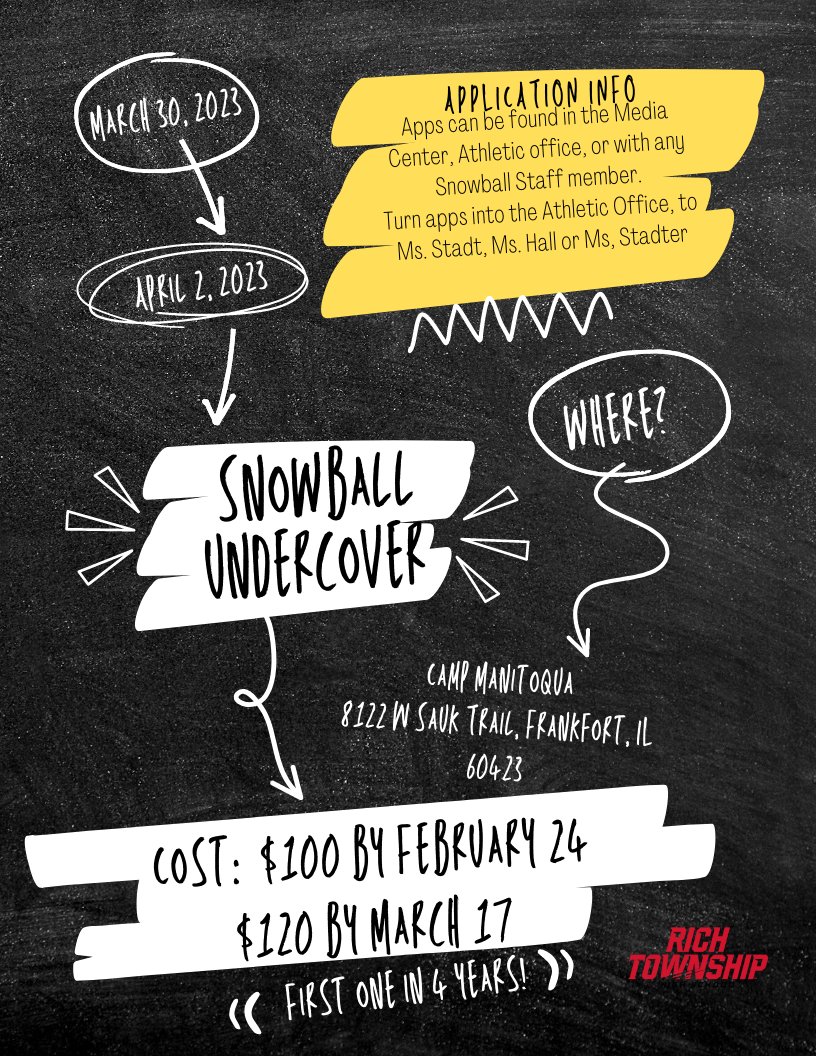 MARCH 30, 2023
APRIL 2, 2023
APPLICATION INFO
Apps can be found in the Media
Center, Athletic office, or with any
Snowball Staff member.
Turn apps into the Athletic Office, to
Ms. Stadt, Ms. Hall or Ms, Stadter
SNOWBALL
UNDERCOVER
WHERE?
CAMP MANITOQUA
8122 W SAUK TRAIL, FRANKFORT, IL
60423
COST: $100 BY FEBRUARY 24
$120 BY MARCH 17
FIRST ONE IN 4 YEARS!
RICH
TOWNSHIP